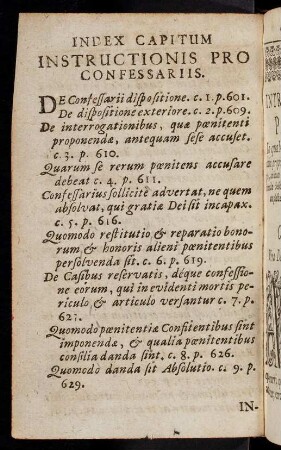 INDEX CAPITUM
INSTRUCTIONIS PRO
CONFESSARIIS.
DE Confeſſarii diſpoſitione. c. 1. p. 601.
De diſpoſitione exteriore. c. 2. p. 609.
De interrogationibus, quæ pœnitenti
proponendæ, antequam ſeſe accuſet.
c. 3. p. 610.
Quarum ſe rerum pœnitens accuſare
debeat c. 4. p. 611.
Confeſſarius ſollicitè advertat, ne quem
abſolvat, qui gratiæ Dei ſit incapax.
c. 5. p. 616.
Quomodo reſtitutio & reparatio bono-
rum, & honoris alieni pœnitentibus
perſolvenda ſit. c. 6. p. 619.
De Caſibus reſervatis, déque confeſſio-
ne eorum, qui in evidenti mortis pe-
riculo, & articulo verſantur c. 7. p.
623.
Quomodo pœnitentiæ Confitentibus ſint
imponendæ, & qualia pœnitentibus
conſilia danda ſint. c. 8. p. 626.
Quomodo danda ſit Abſolutio. c. 9. p.
629.
IN-